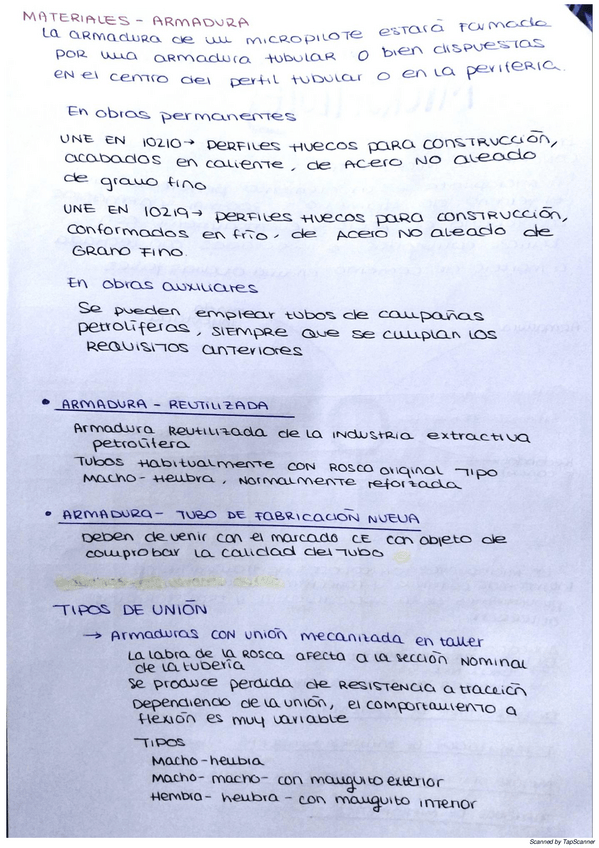 MATERIALES - ARMADURA
La ARMADURA de un MICROPILOTE estará FORMADA
POR una ARMADURA tubular o bien dispuestas
EN el centro del perfil tubular o en la periferia.
En obras permanentes
UNE EN 10210 → PERFILES HUECOS para construcción,
acabados en caliente, de Acero NO aleado
de grano fino
UNE EN 10219 → PERFILES HUECOS PARA CONSTRUCCIÓN,
conformados en frío, de Acero NO aleado de
GRANO FINO.
En obras auxiliares
Se pueden emplear tubos de campañas
petrolíferas, SIEMPRE que se cumplan los
REQUISITOS anteriores
• ARMADURA - REUTILIZADA
Armadura Reutilizada de la INDUSTRIA extractiva
petrolifera
Tubos Habitualmente con Rosca original Tipo
Macho-Hembra, Normalmente reforzada
• ARMADURA - TUBO DE FABRICACIÓN NUEVA
Deben de venir con el marcado CE con objeto de
comprobar la calidad del Tubo
TIPOS DE UNIÓN
→ Armaduras con unión mecanizada en taller
La labra de la ROSCA afecta a la sección NOMINAL
de la tubería
Se produce perdida de RESISTENCIA a tracción
Dependiendo de la unión, el comportamiento a
flexión es muy variable
TIPOS
Macho-hembra
Macho-macho-con manguito exterior
Hembra-hembra-con manguito interior
Scanned by TapScanner